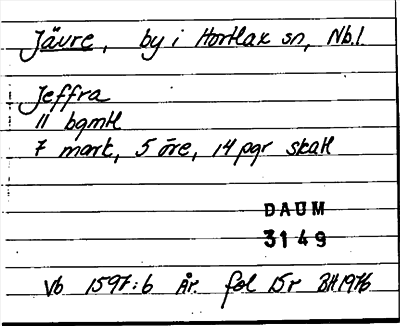 Jävre, by i Hortlax sn, Nb.l.
Jeffra
11 bgmtl
7 mark, 5 öre, 14 pgr skatt
DAUM
3149
Vb 1597:6 År. fol 15r BH1976